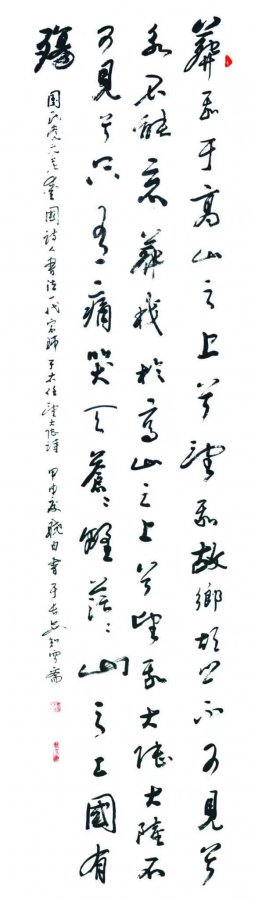 葬我于高山之上兮望我故鄉故鄉不可見兮
永不能忘葬我於高山之上兮望我大陸大陸不
可見兮只有痛哭天蒼々野茫々山之上國有
殤
國民党元老愛國詩人書法一代宗師于右任望大陸詩 甲申夏曉白書于長安